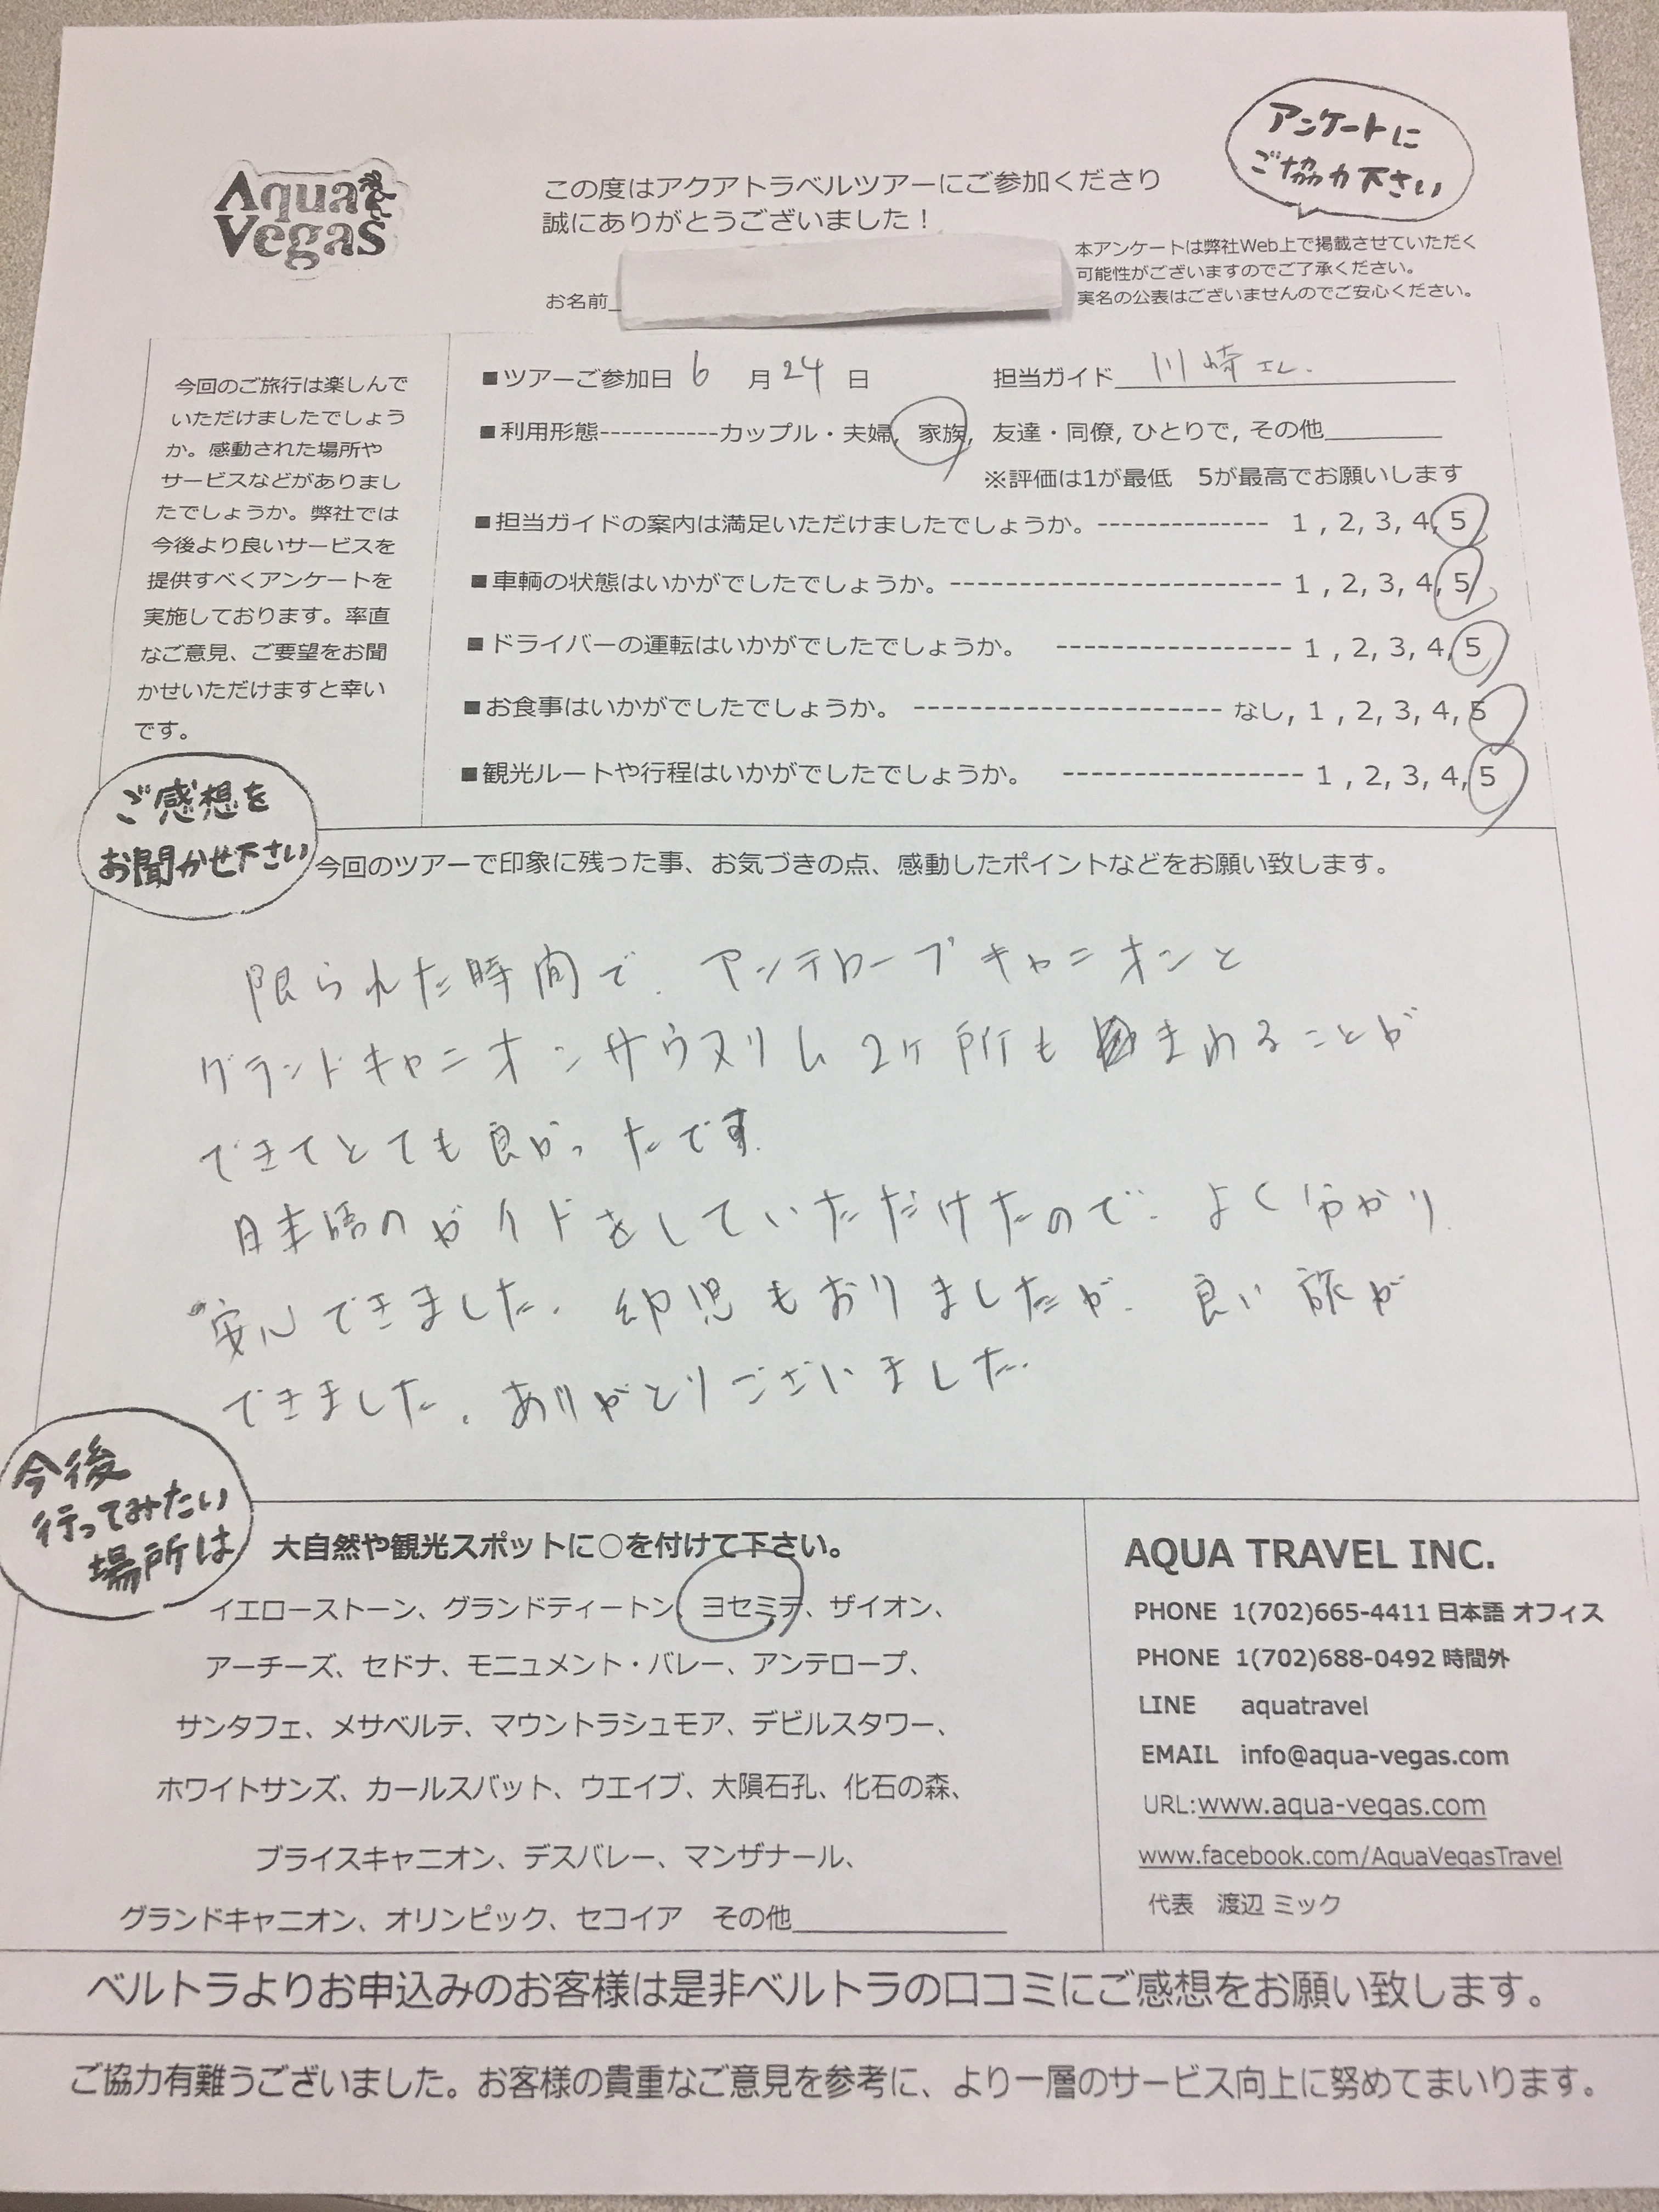 Aqua
Vegas
この度はアクアトラベルツアーにご参加くださり
誠にありがとうございました！
アンケートに
ご協力下さい
本アンケートは弊社Web上で掲載させていただく
可能性がございますのでご了承ください。
実名の公表はございませんのでご安心ください。
お名前
今回のご旅行は楽しんで
いただけましたでしょう
か。感動された場所や
サービスなどがありまし
たでしょうか。弊社では
今後より良いサービスを
提供すべくアンケートを
実施しております。率直
なご意見、ご要望をお聞
かせいただけますと幸い
です。
■ツアーご参加日 6 月 24 日 担当ガイド 川崎
■利用形態-----------カップル・夫婦, 家族, 友達・同僚, ひとりで, その他
※評価は1が最低 5が最高でお願いします
■担当ガイドの案内は満足いただけましたでしょうか。------------- 1 , 2, 3, 4, 5
■車輌の状態はいかがでしたでしょうか。------------------------ 1 , 2, 3, 4, 5
■ドライバーの運転はいかがでしたでしょうか。 ----------------- 1 , 2, 3, 4, 5
■お食事はいかがでしたでしょうか。 ---------------------- なし, 1 , 2, 3, 4, 5
■観光ルートや行程はいかがでしたでしょうか。 ----------------- 1 , 2, 3, 4, 5
ご感想を
お聞かせ下さい
今回のツアーで印象に残った事、お気づきの点、感動したポイントなどをお願い致します。
限られた時間で、アンテロープキャニオンと
グランドキャニオンサウスリム2ヶ所もまわれることが
できてとても良かったです。
日本語のガイドをしていただけたので、よく分かり
安心できました。幼児もおりましたが、良い旅が
できました。ありがとうございました。
今後
行ってみたい
場所は
大自然や観光スポットに○を付けて下さい。
イエローストーン、グランドティートン、ヨセミテ、ザイオン、
アーチーズ、セドナ、モニュメント・バレー、アンテロープ、
サンタフェ、メサベルテ、マウントラシュモア、デビルスタワー、
ホワイトサンズ、カールスバット、ウエイブ、大隕石孔、化石の森、
ブライスキャニオン、デスバレー、マンザナール、
グランドキャニオン、オリンピック、セコイア その他
AQUA TRAVEL INC.
PHONE 1(702)665-4411 日本語 オフィス
PHONE 1(702)688-0492 時間外
LINE aquatravel
EMAIL info@aqua-vegas.com
URL:www.aqua-vegas.com
www.facebook.com/AquaVegasTravel
代表 渡辺 ミック
ベルトラよりお申込みのお客様は是非ベルトラの口コミにご感想をお願い致します。
ご協力有難うございました。お客様の貴重なご意見を参考に、より一層のサービス向上に努めてまいります。